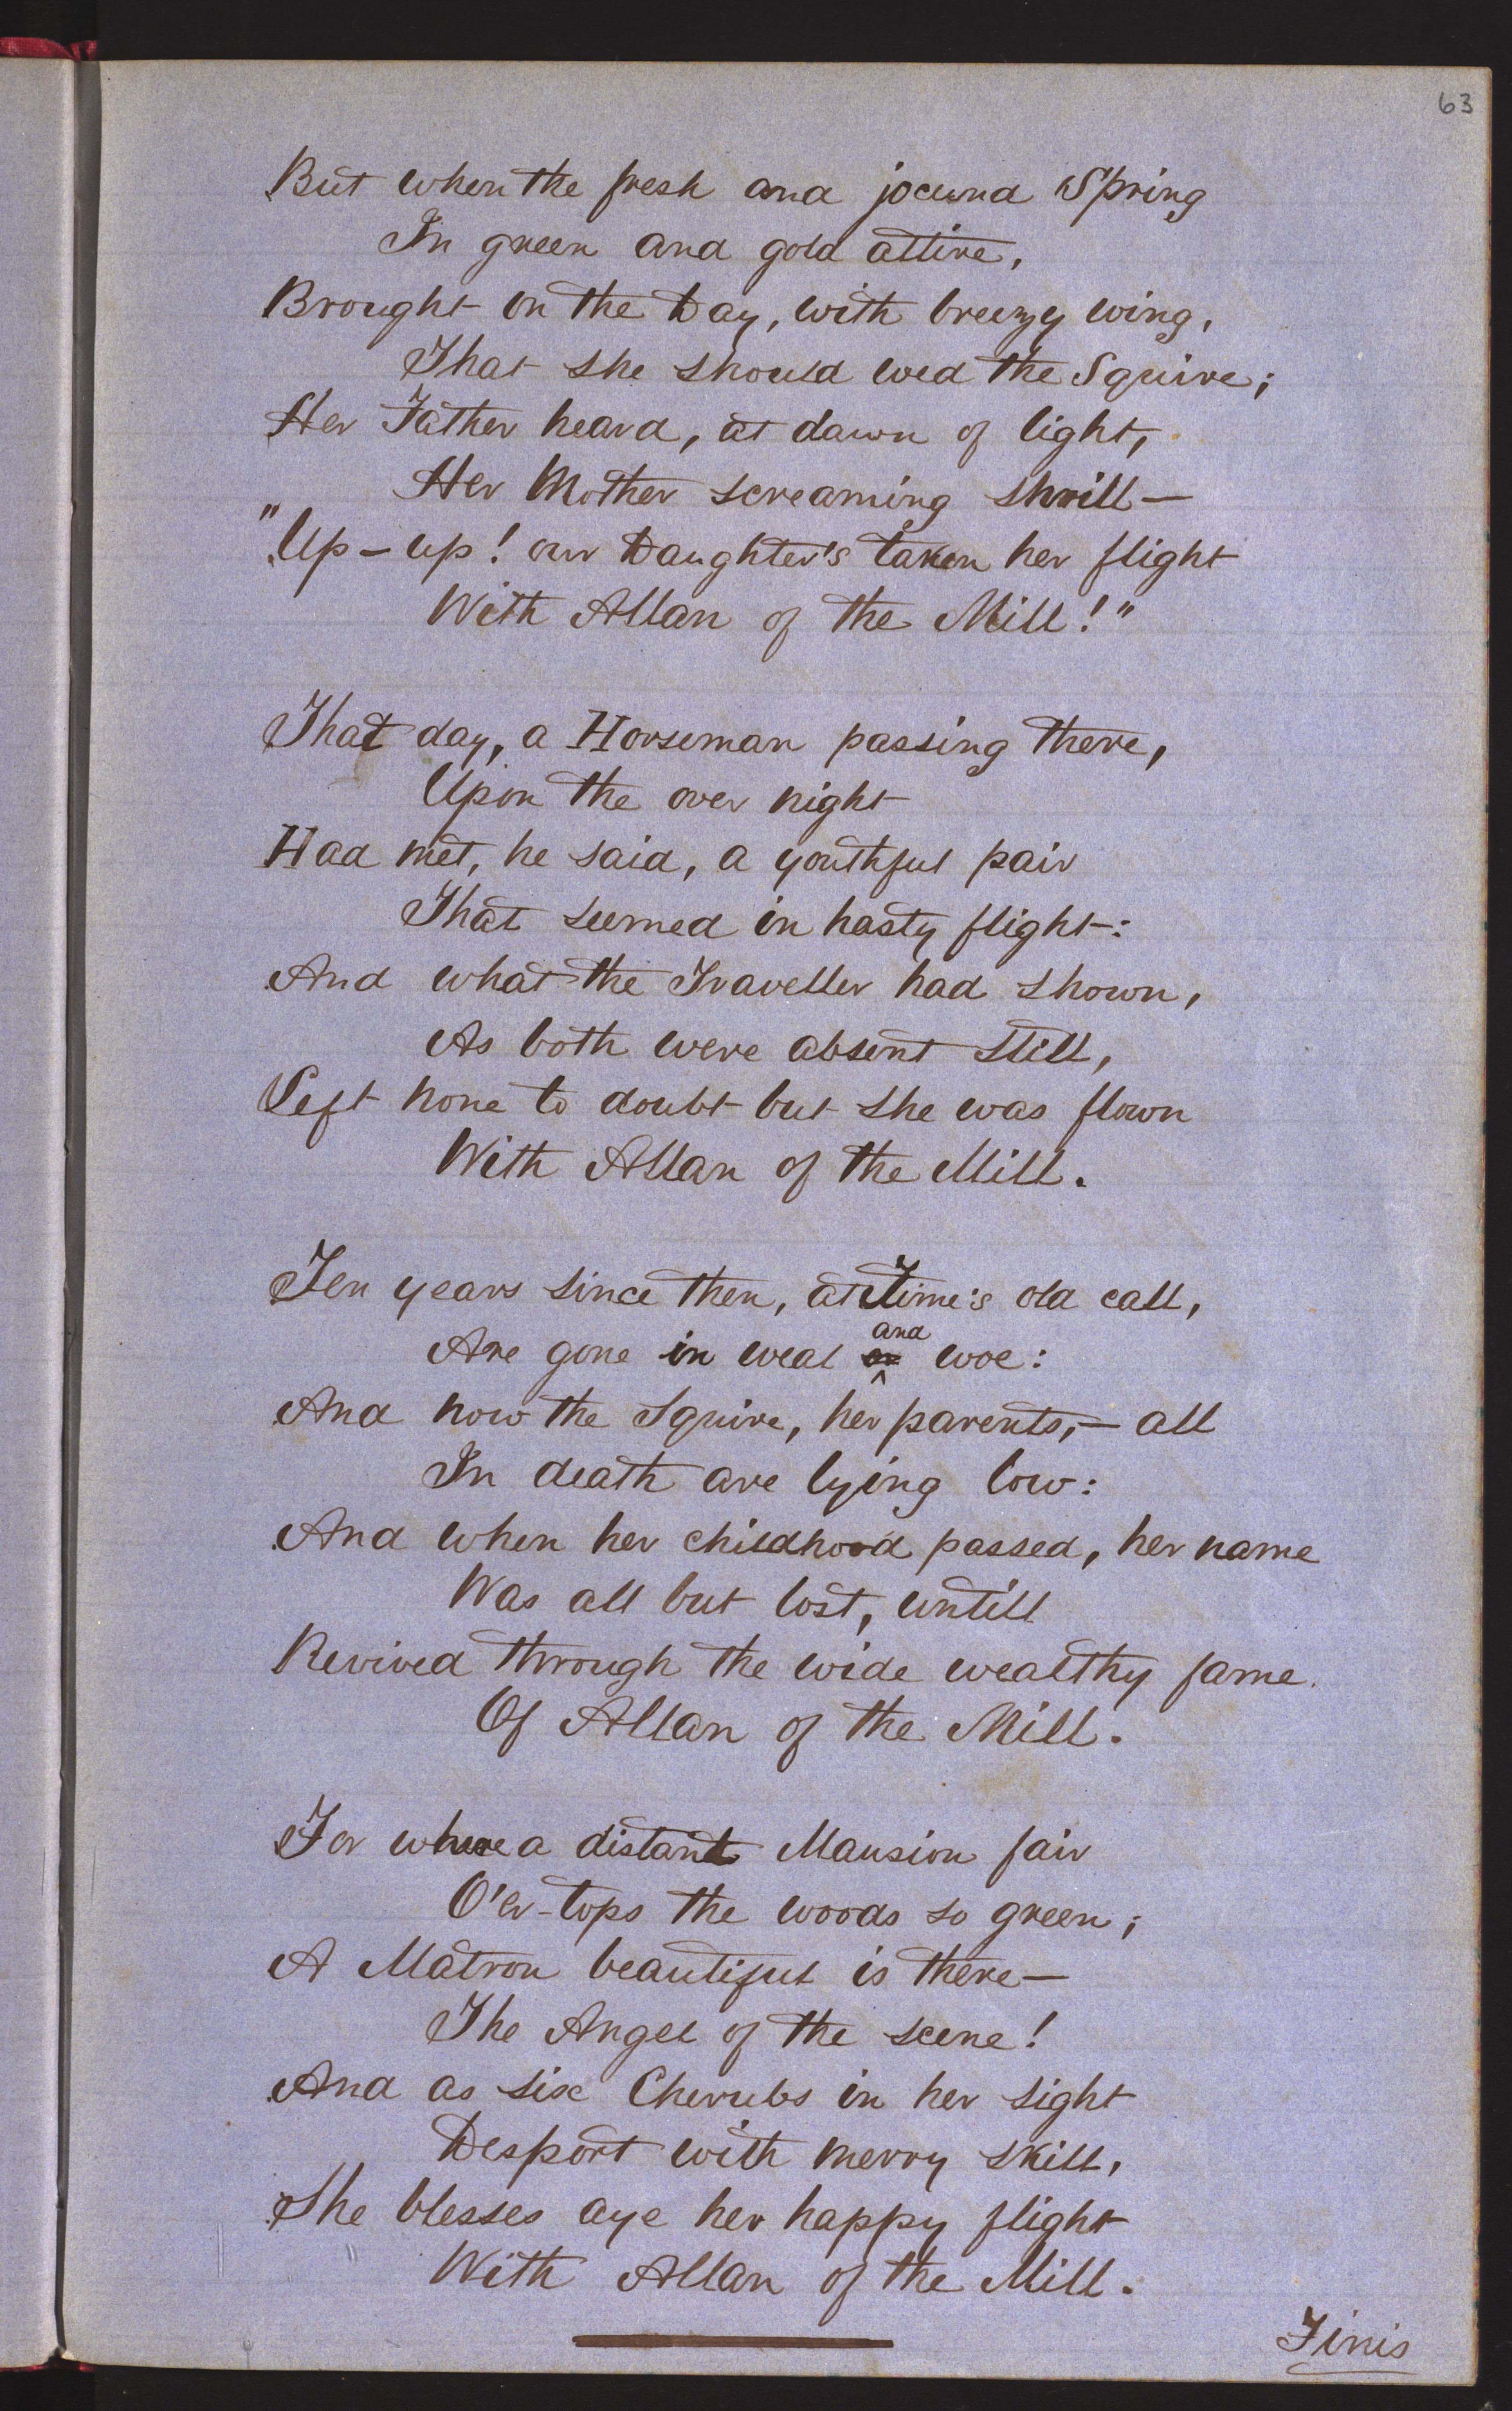 63
But when the fresh and jocund Spring
In green and gold attire,
Brought on the Day, with breezy wing,
That she should wed the Squire;
Her Father heard, at dawn of light,
Her Mother screaming shrill—
"Up—up! our Daughter's taken her flight
With Allan of the Mill!"
That day, a Horseman passing there,
Upon the over night
Had met, he said, a youthful pair
That seemed in hasty flight:
And what the Traveller had shown,
As both were absent still,
Left none to doubt but she was flown
With Allan of the Mill.
Ten years since then, at Time's old call,
Are gone in weal or and woe:
And now the Squire, her parents,— all
In death are lying low:
And when her childhood passed, her name
Was all but lost, untill
Revived through the wide wealthy fame.
Of Allan of the Mill.
For where a distant Mansion fair
O'er-tops the woods so green;
A Matron beautiful is there—
The Angel of the scene!
And as six Cherubs in her sight
Desport with merry skill,
She blesses aye her happy flight
With Allan of the Mill.
Finis